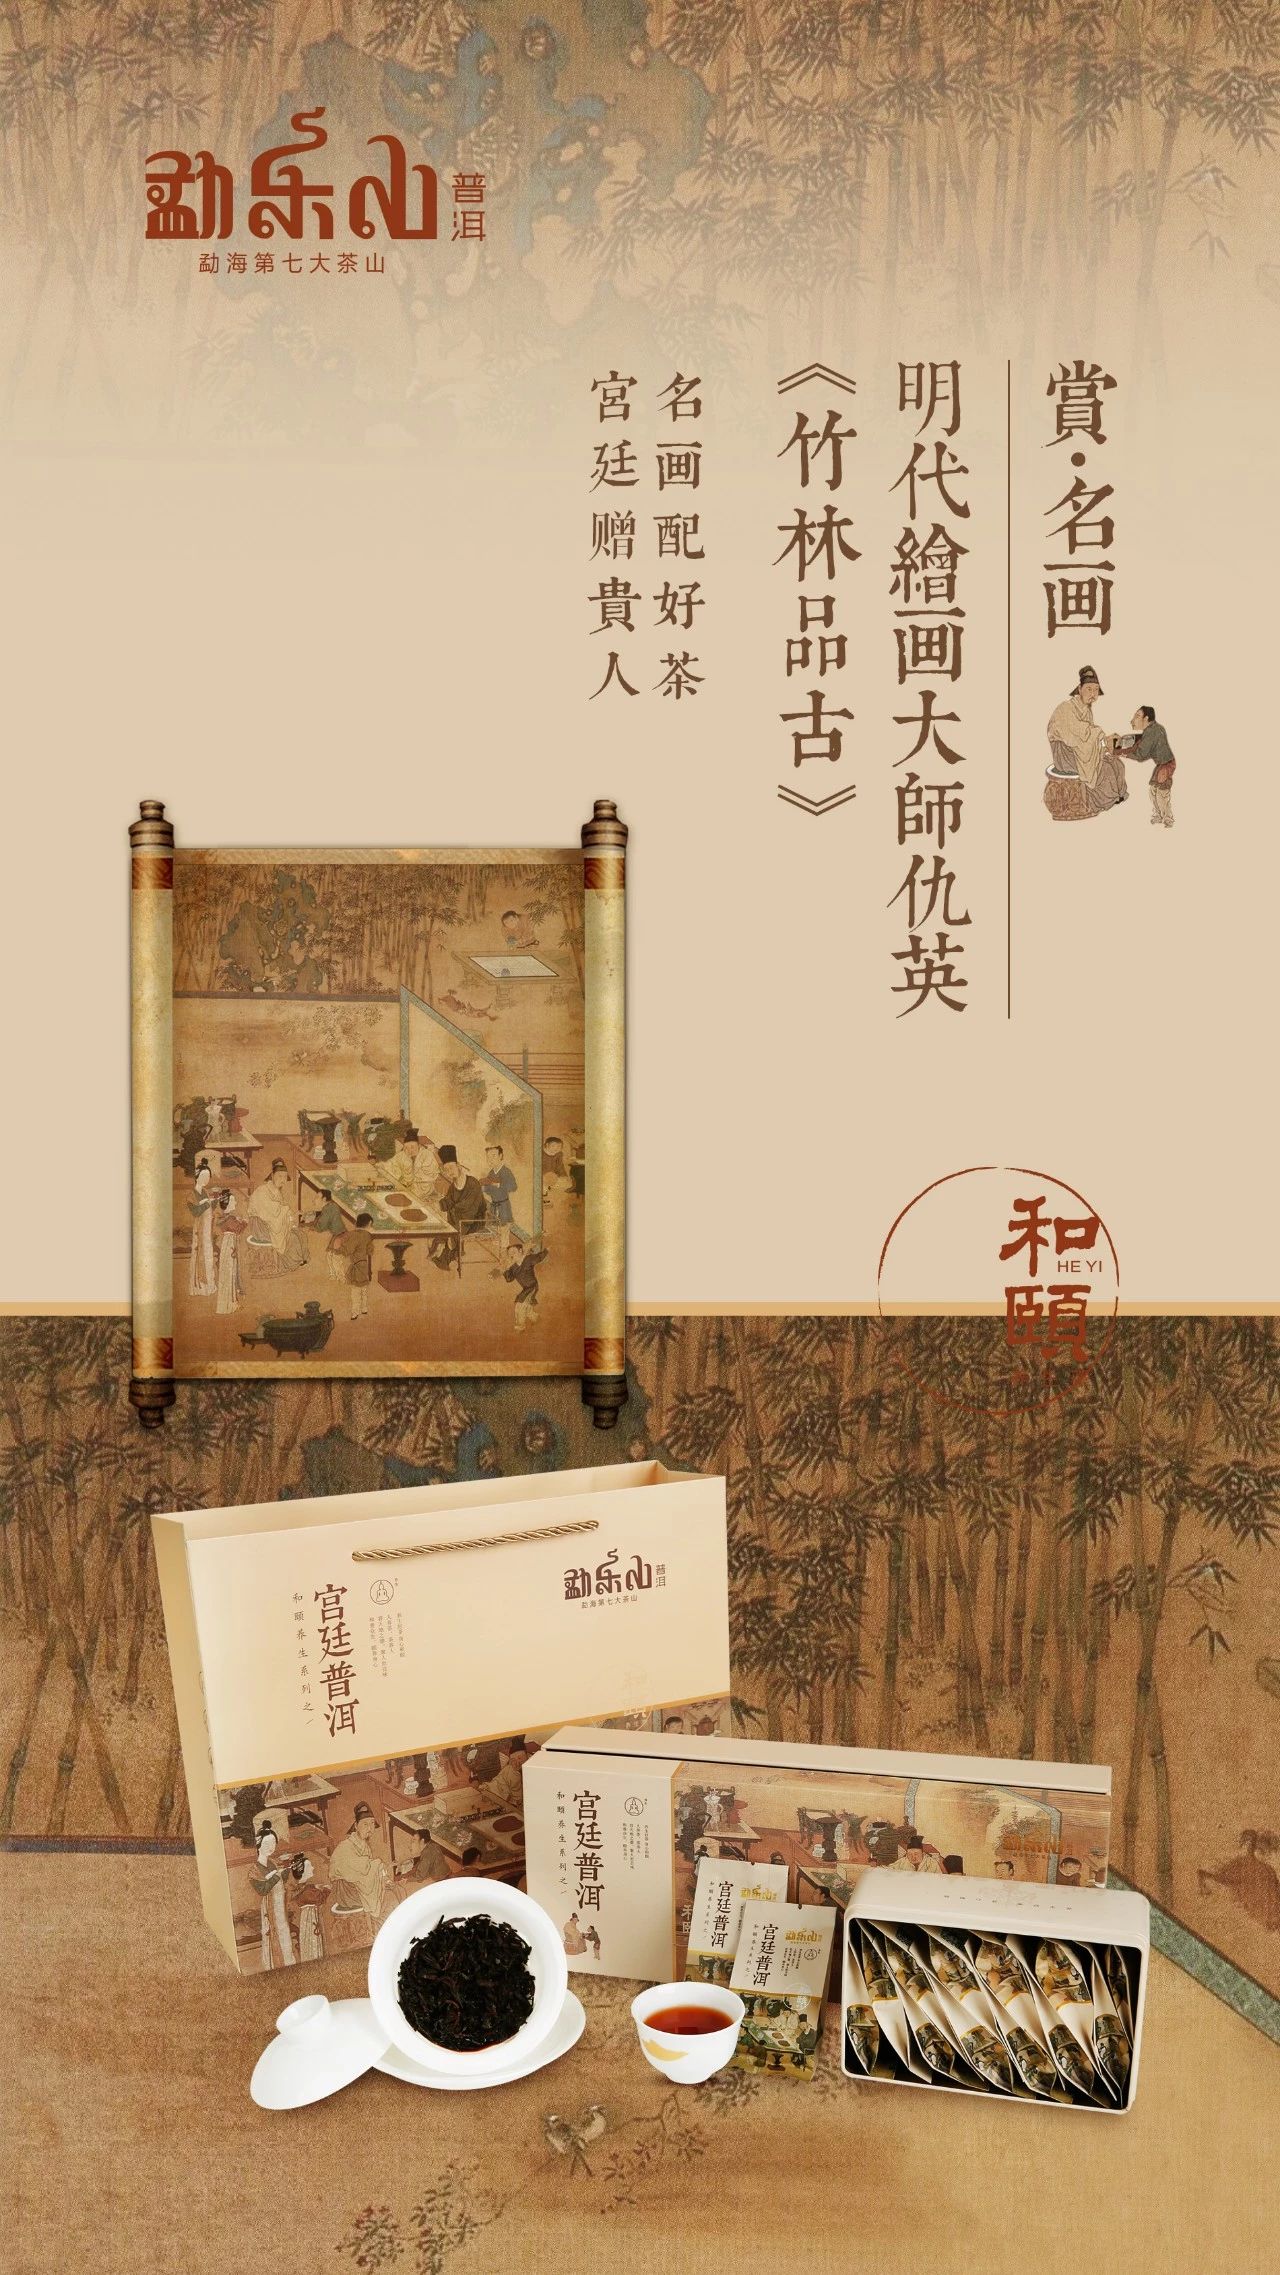 勐乐山
普洱
勐海第七大茶山
賞·名画
明代繪画大師仇英
《竹林品古》
名画配好茶
宮廷赠貴人
和
HE YI
頤
勐乐山
普洱
勐海第七大茶山
宫廷普洱
和颐养生系列之一
宫廷普洱
和颐养生系列之一
勐乐山
宫廷普洱
勐乐山
宫廷普洱
勐乐山